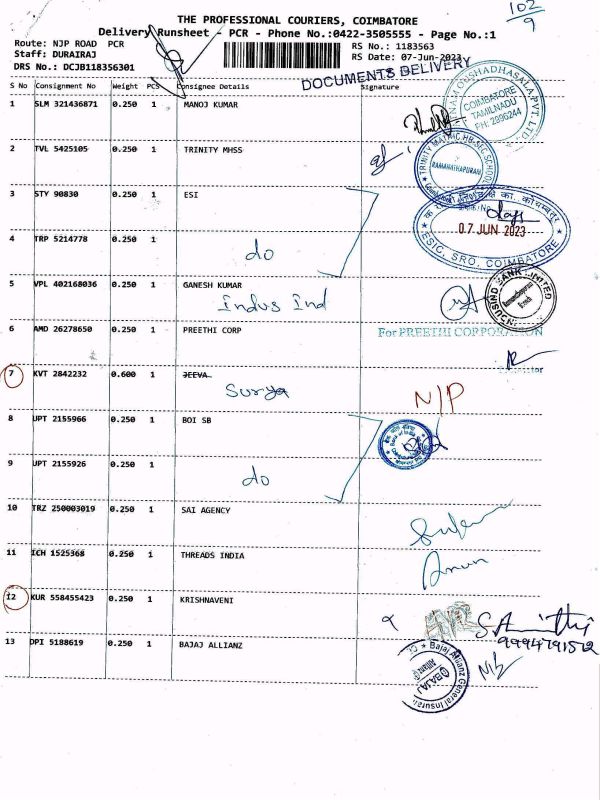 102/9
THE PROFESSIONAL COURIERS, COIMBATORE
Delivery Runsheet - PCR - Phone No.:0422-3505555 - Page No.:1
Route: NJP ROAD PCR
RS No.: 1183563
Staff: DURAIRAJ
RS Date: 07-Jun-2023
DRS No.: DCJB118356301
DOCUMENTS DELIVERY
S No Consignment No Weight PCS Consignee Details Signature
1 SLM 321436871 0.250 1 MANOJ KUMAR
COIMBATORE
TAMILNADU
PH: 2896244
2 TVL 5425105 0.250 1 TRINITY MHSS
TRINITY MAT.HR.SEC.SCHOOL
RAMANATHAPURAM
3 STY 90830 0.250 1 ESI
07 JUN 2023
ESIC, SRO, COIMBATORE
4 TRP 5214778 0.250 1
do
5 VPL 402168036 0.250 1 GANESH KUMAR
Indus Ind
INDUSIND BANK LIMITED
Branch
6 AMD 26278650 0.250 1 PREETHI CORP
For PREETHI CORPORATION
7 KVT 2842232 0.600 1 JEEVA
Surya
N/P
8 UPT 2155966 0.250 1 BOI SB
Bank of India
9 UPT 2155926 0.250 1
do
10 TRZ 250003019 0.250 1 SAI AGENCY
11 ICH 1525368 0.250 1 THREADS INDIA
Arun
12 KUR 558455423 0.250 1 KRISHNAVENI
13 DPI 5188619 0.250 1 BAJAJ ALLIANZ
Bajaj Allianz General Insurance
BAJAJ